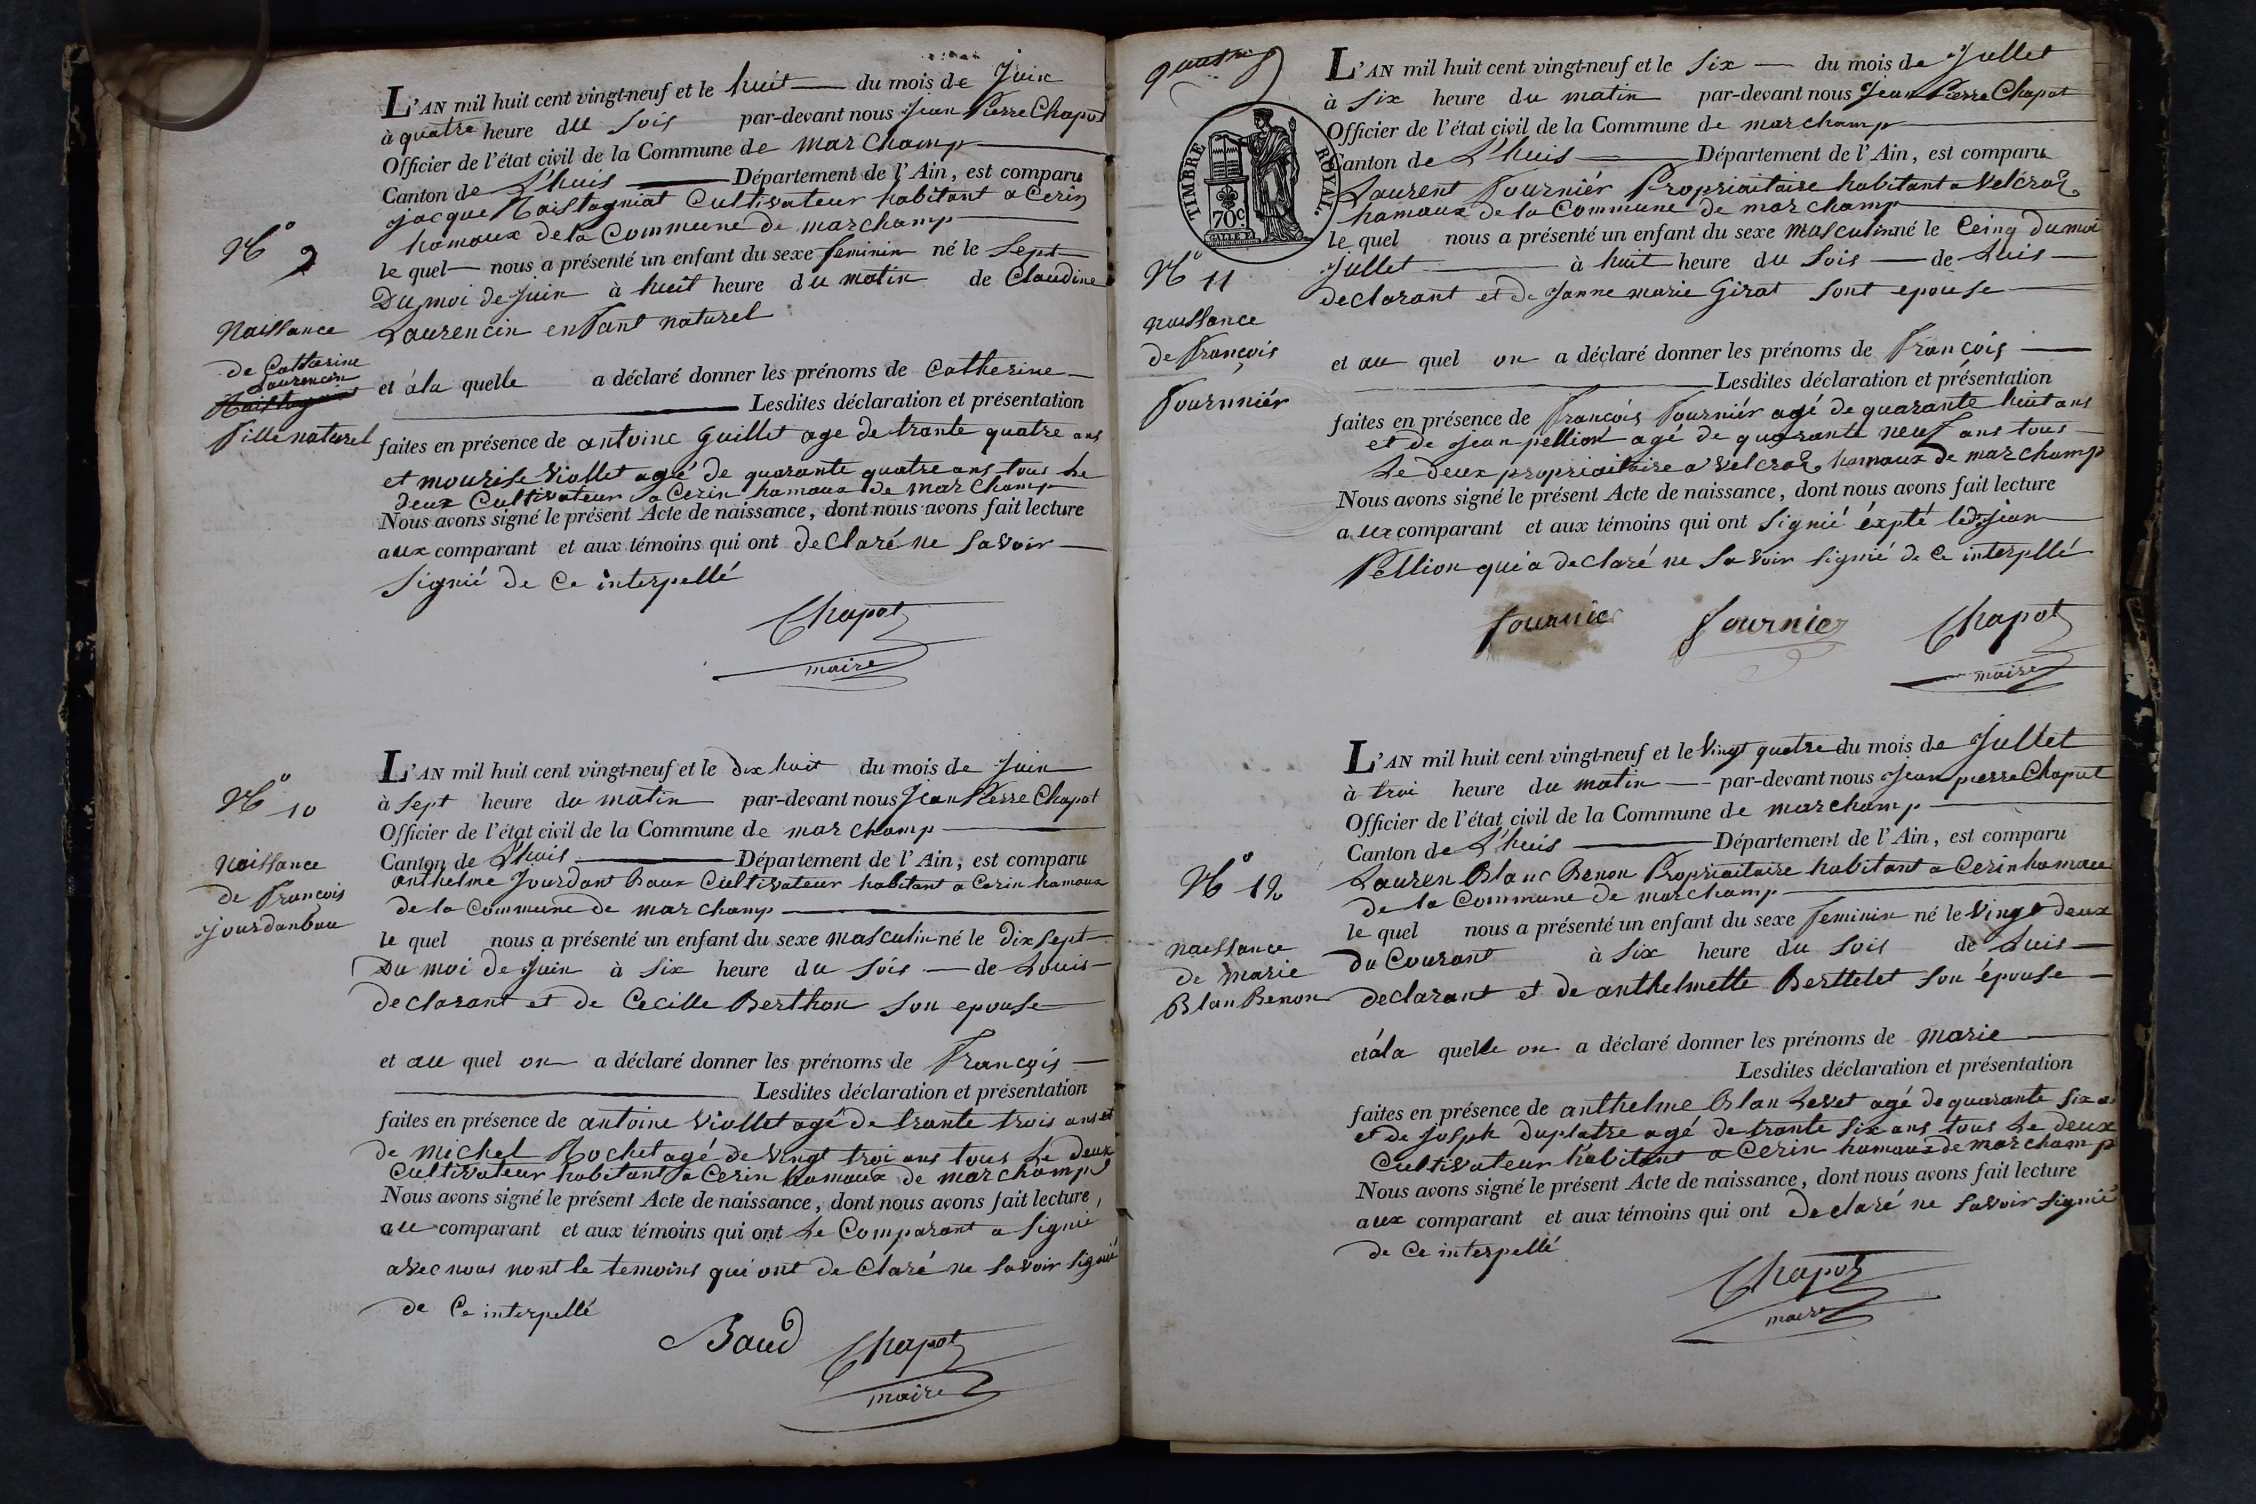 L'AN mil huit cent vingt-neuf et le huit du mois de Juin
à quatre heure du Soir par-devant nous Jean Pierre Chapot
Officier de l'état civil de la Commune de marchamp
Canton de L'huis Département de l'Ain, est comparu
jacque cultivateur habitant a Cerin
hamaux de la Commune de marchamp
le quel nous a présenté un enfant du sexe feminin né le Sept
Du moi de Juin à huit heure du matin de Claudine
Laurencin enfant naturel
et àla quelle a déclaré donner les prénoms de Catherine
Lesdites déclaration et présentation
faites en présence de antoine Guillet age de trante quatre ans
et mourise Viollet agé de quarante quatre ans tous Le
deux Cultivateur a Cerin hamaux de marchamp
Nous avons signé le présent Acte de naissance, dont nous avons fait lecture
aux comparant et aux témoins qui ont declaré ne Savoir
Signié de Ce interpellé
Chapot
maire
N° 9
Naissance
de Catherine
Laurencin
fille naturel
L'AN mil huit cent vingt-neuf et le dix huit du mois de Juin
à Sept heure du matin par-devant nous Jean Pierre Chapot
Officier de l'état civil de la Commune de marchamp
Canton de L'huis Département de l'Ain, est comparu
anthelme Jourdant Baux Cultivateur habitant a Cerin hamaux
de la Commune de marchamp
le quel nous a présenté un enfant du sexe masculin né le Dix Sept
Du moi de Juin à Six heure du Soir de Louis
declarant et de Cecille Berthon Son epouse
et au quel on a déclaré donner les prénoms de François
Lesdites déclaration et présentation
faites en présence de antoine Viollet agé de trante trois ans et
de michel Rochet agé de vingt troi ans tous Le Deux
Cultivateur habitant a Cerin hamaux de marchamp
Nous avons signé le présent Acte de naissance, dont nous avons fait lecture,
au comparant et aux témoins qui ont Le Comparant a Signié
avec nous nont le temoins qui ont declaré ne Savoir Signié
de Ce interpellé
Baud Chapot
maire
N° 10
Naissance
de François
Jourdanbau
L'AN mil huit cent vingt-neuf et le Six du mois de Jullet
à Six heure du matin par-devant nous Jean Pierre Chapot
Officier de l'état civil de la Commune de marchamp
Canton de L'huis Département de l'Ain, est comparu
Laurent Fourniér Propriaitaire habitant a Velcroz
hamaux de la Commune de marchamp
le quel nous a présenté un enfant du sexe masculin né le Ceinq du moi
Jullet à huit heure du Soir de Luis
declarant et de Janne marie Girat Sont epouse
et au quel on a déclaré donner les prénoms de François
Lesdites déclaration et présentation
faites en présence de François Fourniér agé de quarante huit ans
et de jean pellion agé de quarante neuf ans tous
Le deux propriaitaire a Velcroz hamaux de marchamp
Nous avons signé le présent Acte de naissance, dont nous avons fait lecture
aux comparant et aux témoins qui ont Signié éxpté jean
Pellion qui a declaré ne Savoir Signié de Ce interpllé
fournier fournier Chapot
maire
TIMBRE ROYAL.
70c.
N° 11
Naissance
de François
Fournniér
L'AN mil huit cent vingt-neuf et le Vingt quatre du mois de Jullet
à troi heure du matin par-devant nous Jean pierre Chaput
Officier de l'état civil de la Commune de marchamp
Canton de L'huis Département de l'Ain, est comparu
Lauren Blanc Benon Propriaitaire habitant a Cerin hamau
de la Commune de marchamp
le quel nous a présenté un enfant du sexe Feminin né le Vingt deux
du Courant à Six heure du Soir de Luis
declarant et de anthelmette Berttelet Son épouse
et àla quelle on a déclaré donner les prénoms de marie
Lesdites déclaration et présentation
faites en présence de anthelme Blan Levet agé de quarante Six
et de Josph Duplatre agé de trante Six ans tous Le deux
Cultivateur habitant a Cerin hamaux de marchamp
Nous avons signé le présent Acte de naissance, dont nous avons fait lecture
aux comparant et aux témoins qui ont declaré ne Savoir Signié
de Ce interpellé
Chapot
maire
N° 12
Naissance
de marie
Blan Benon